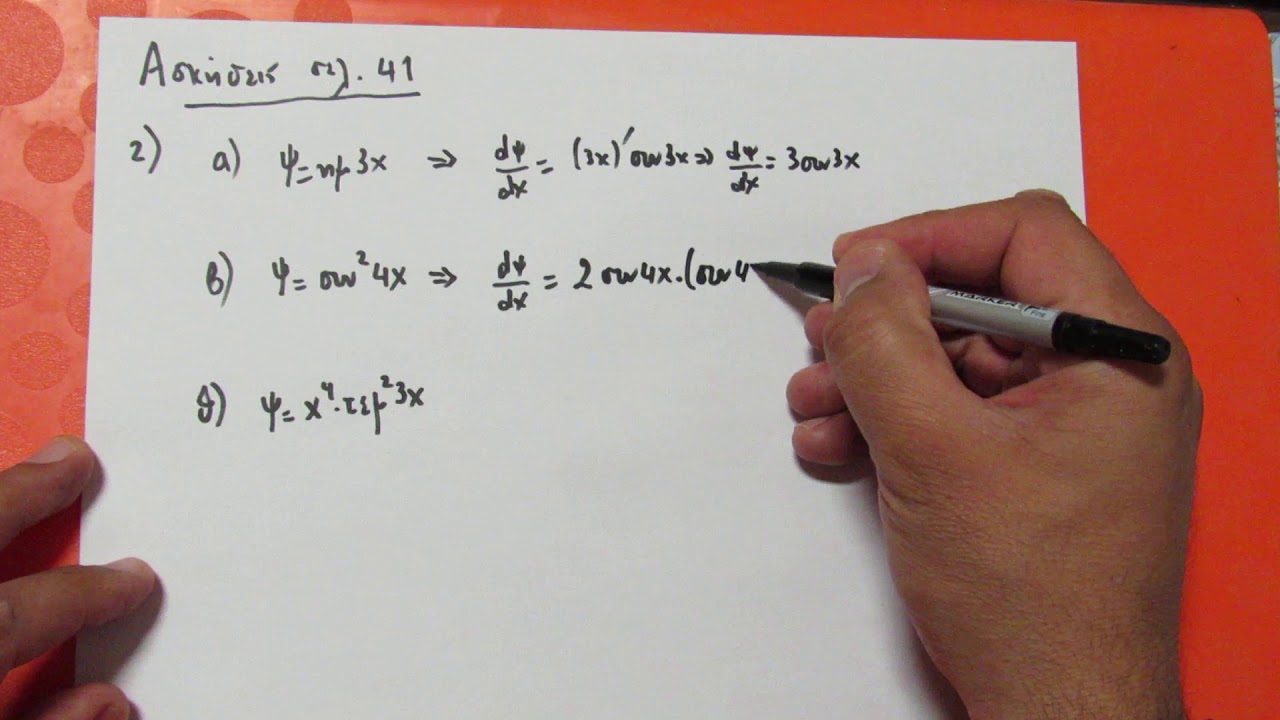 Ασκήσεις σελ. 41
2) α) ψ=ημ3x ⇒ dψ/dx = (3x)′συν3x ⇒ dψ/dx = 3συν3x
β) ψ=συν²4x ⇒ dψ/dx = 2συν4x·(συν4
γ) ψ=x⁴·τεμ²3x
MARKER